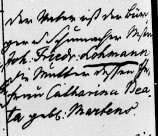 der Vater ist der Bür-
ger u. Schumacher Mstr.
Joh. Friedr. Lohmann
die Mutter dessen Eh-
frau Catharina Bea-
ta geb. Martens